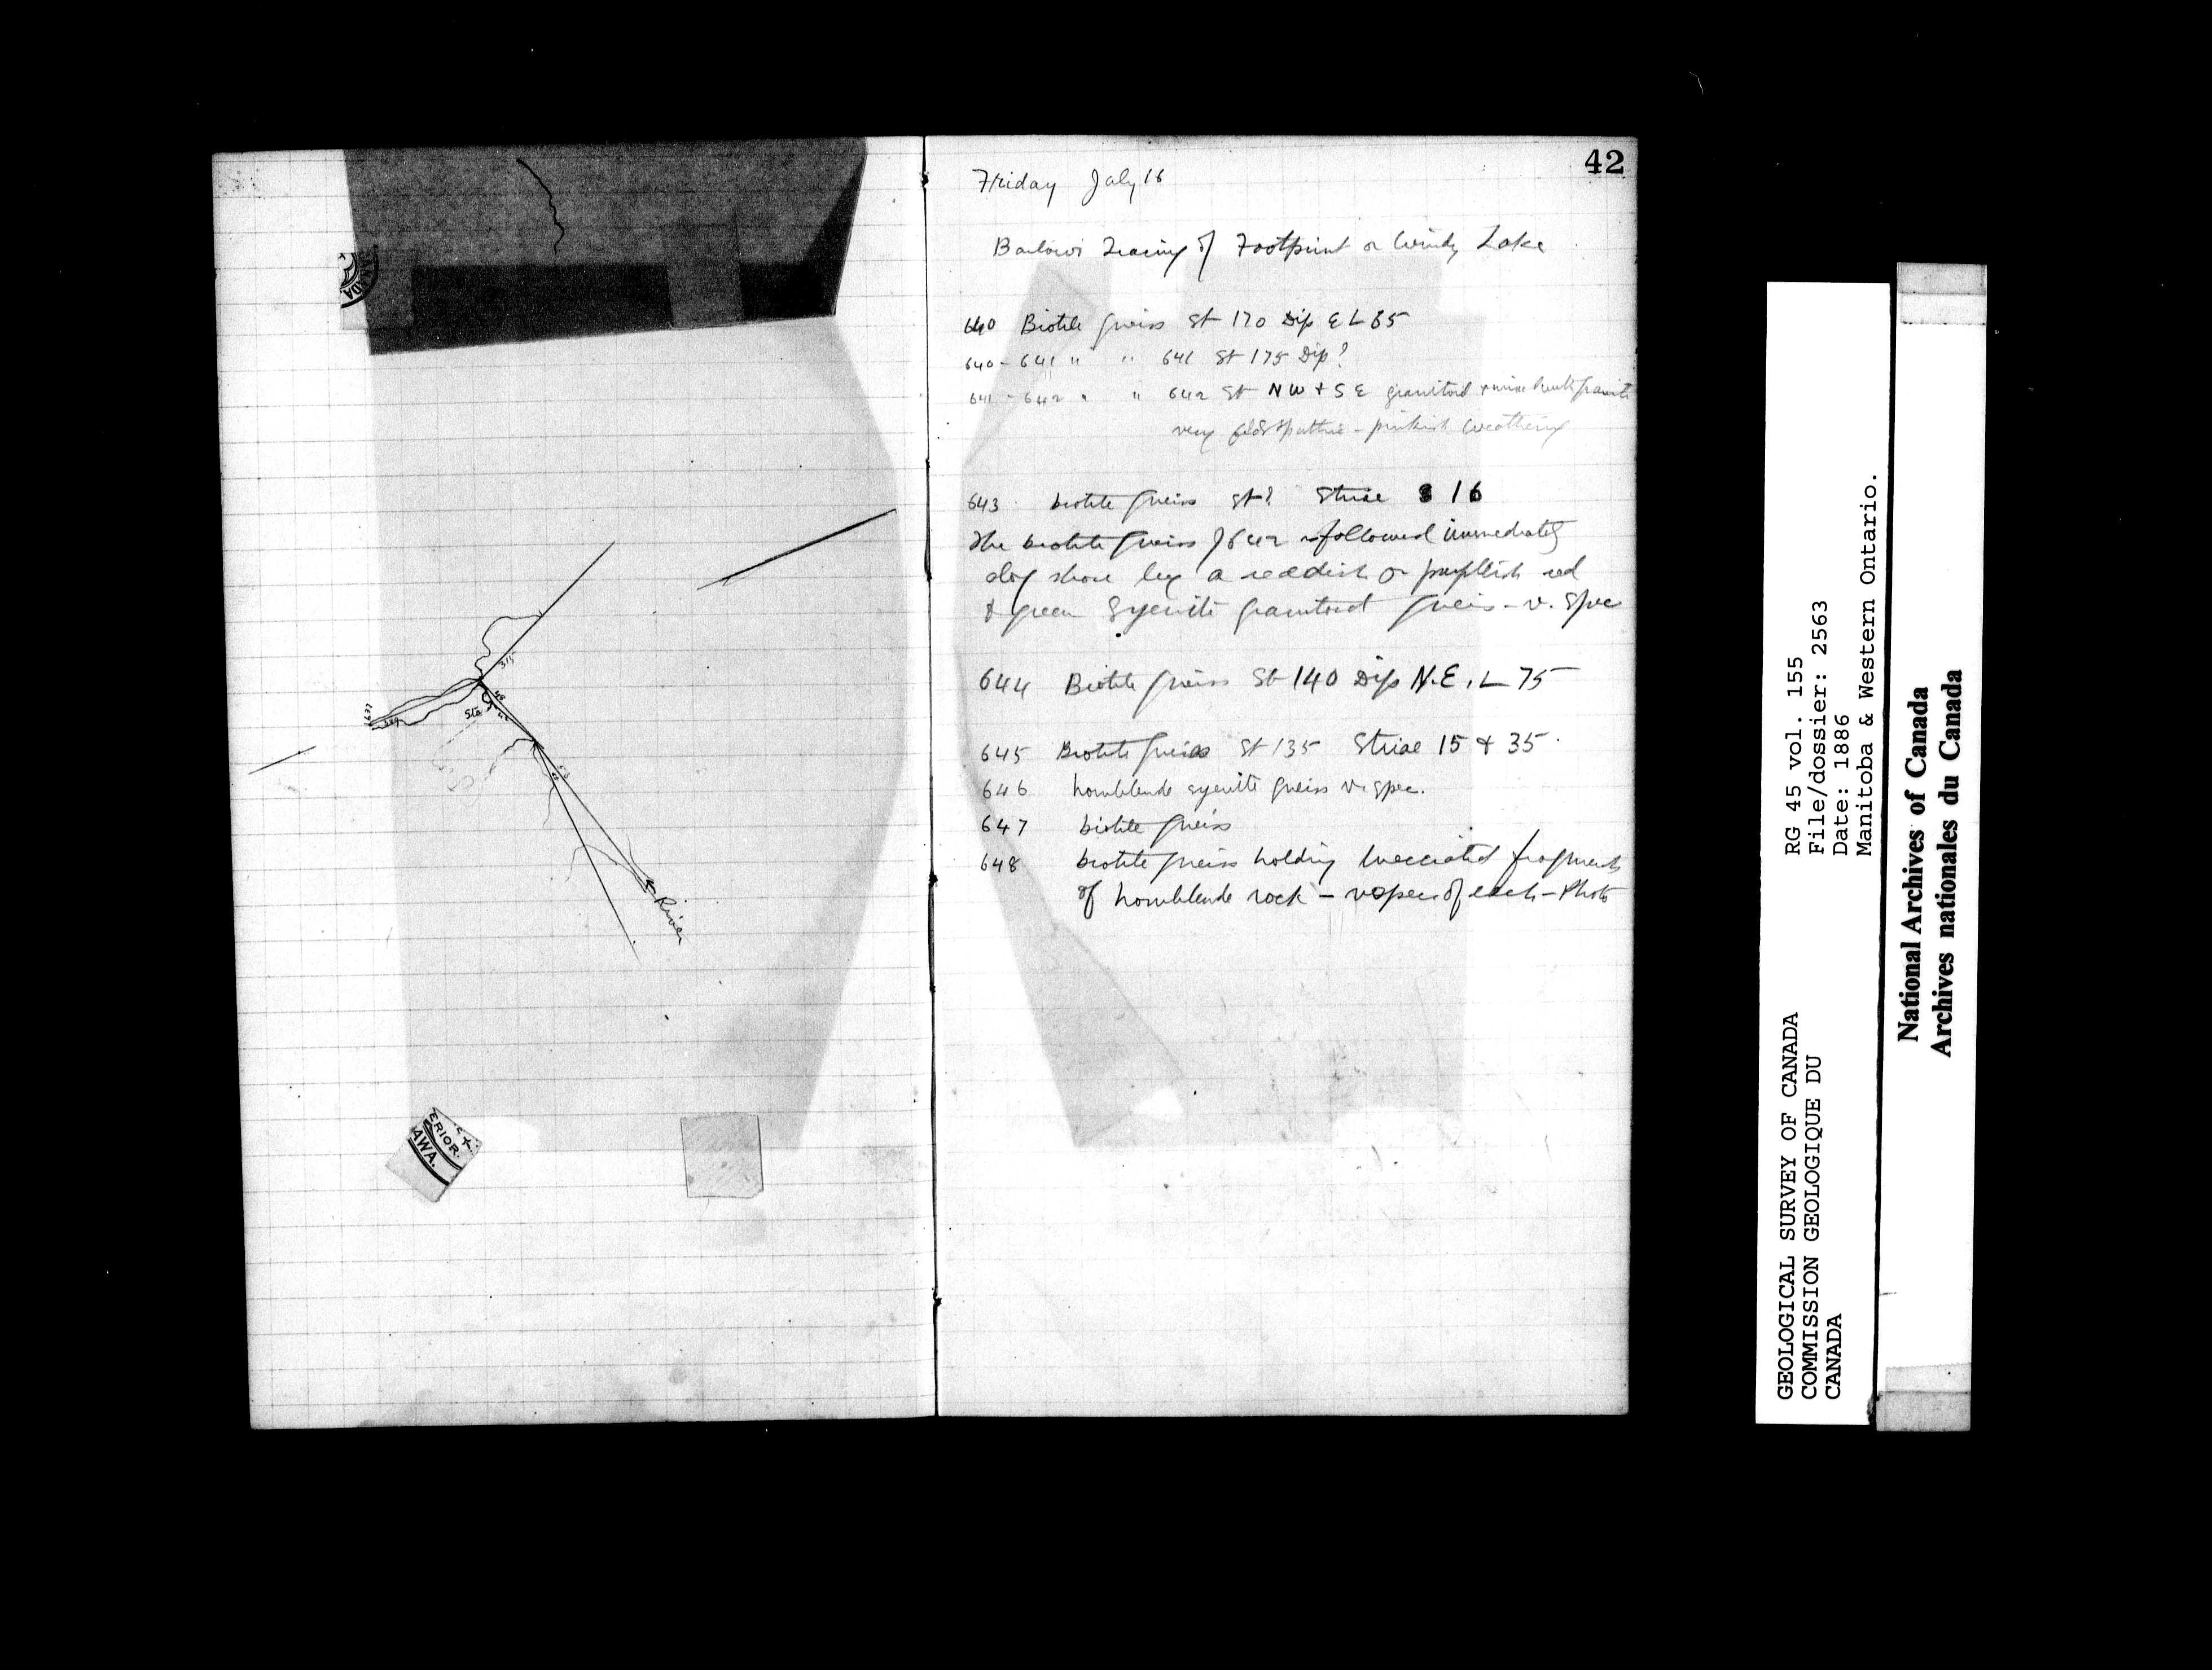 42
Friday July 16
Barlow's Tracing of Footprint or Windy Lake
640 Biotite gneiss St 170 Dip E L 85
640 - 641 " " 641 St 175 Dip?
641 - 642 " " 642 St NW + SE granitoid + mixed with granite
very feldspathic - pinkish weathering
643 biotite gneiss St? Striae 16
The biotite gneiss of 642 is followed immediately
alog shore by a reddish or purplish red
& green Syenite granitoid gneiss - v. Spec
644 Biotite gneiss St 140 Dip N.E. L 75
645 Biotite gneiss St 135 Striae 15 & 35.
646 hornblende syenite gneiss v. spec.
647 biotite gneiss
648 biotite gneiss holding brecciated fragments
of hornblende rock - v spec of each - Photo
315
Sta
River
ERIOR.
AWA.
RG 45 vol. 155
File/dossier: 2563
Date: 1886
Manitoba & Western Ontario.
GEOLOGICAL SURVEY OF CANADA
COMMISSION GEOLOGIQUE DU
CANADA
National Archives of Canada
Archives nationales du Canada